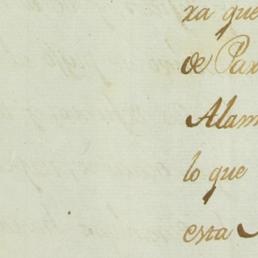 xa que
de Pax
Alam
lo que
esta